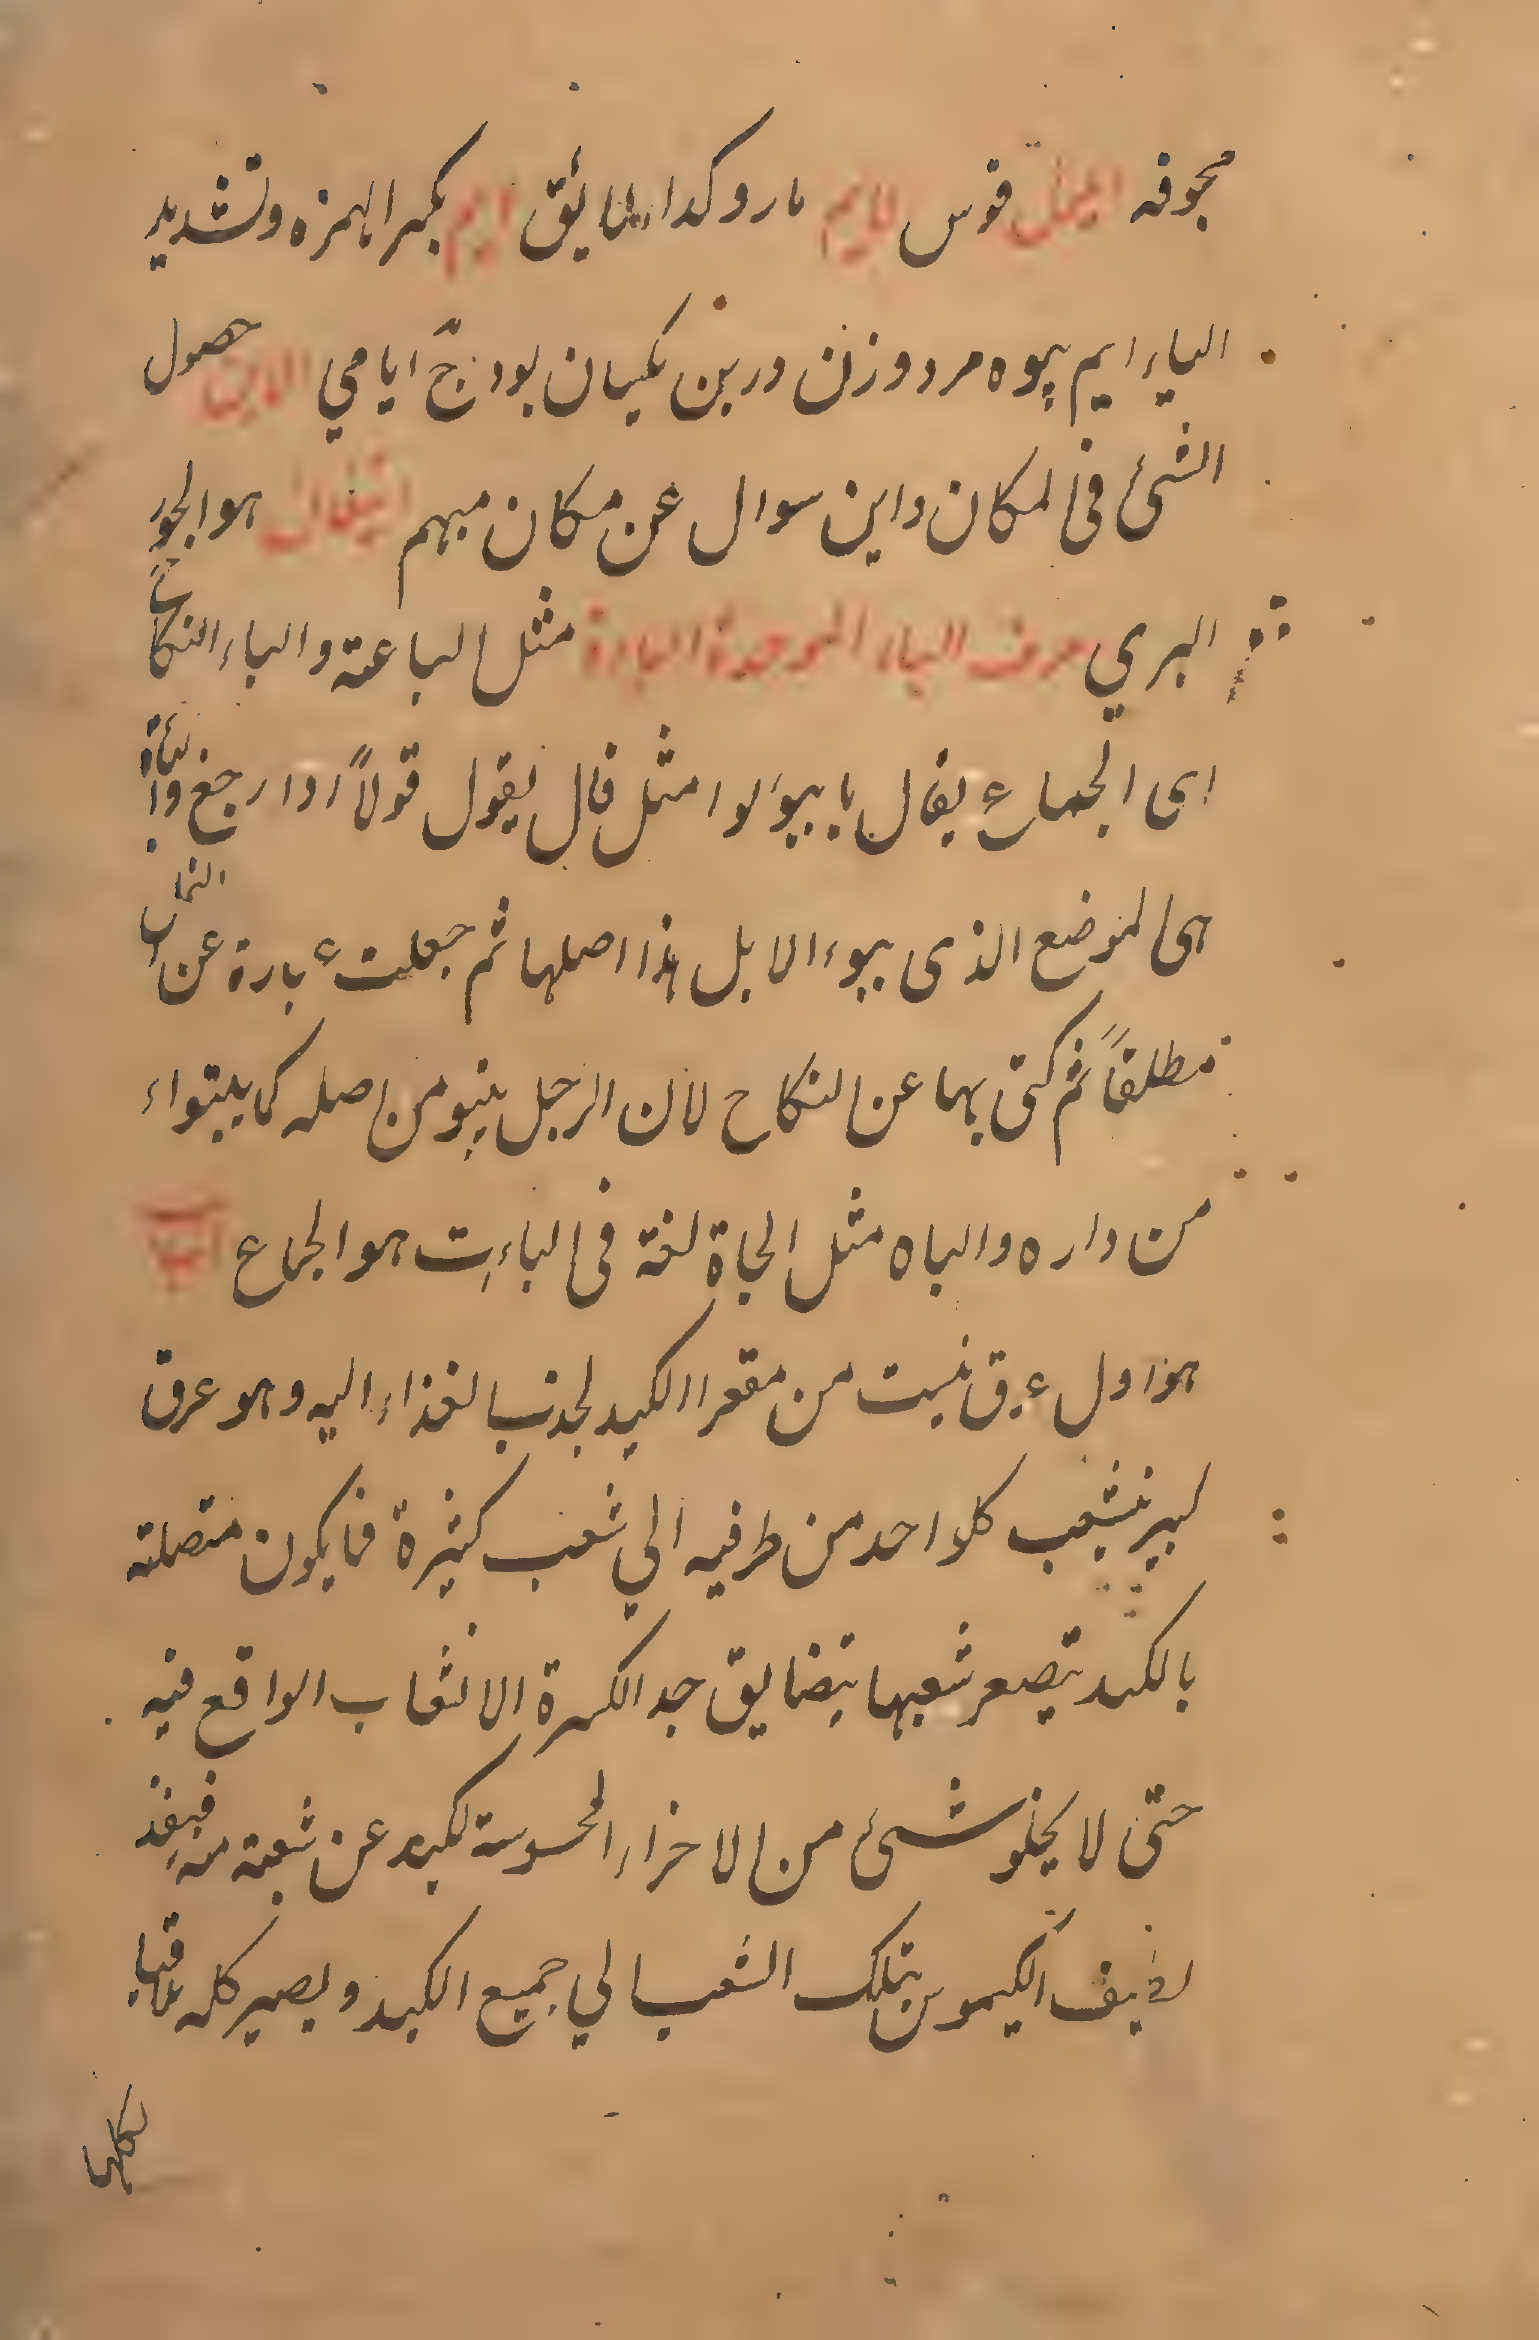 مجوفه الايل قوس الايم مار وكذا، لنا يُق ايم بكسر الهمزه وتشديد
الياء ايم بيوه مرد وزن درين يكسان بود جّ ايامي الاين حصول
الشئ فى المكان واين سوال عن مكان مبهم ايهقان هو الجوز
البري حرف الباء الموحدة الباءة مثل الباعة والباء النكاح
اى الجماع يقال با يبوٴ بوا مثل قال يقول قولاً اذا رجع والباٴة
هى الموضع الذى يبوء الابل هذا اصلها ثم جعلت عبارة عن المنزل
مطلقاً ثم كنى بها عن النكاح لان الرجل يتبو من اصله كما يتبواء
من داره والباه مثل الجاة لغة فى الباءت هو الجماع الباب
هو اول عرق نبت من مقعر الكبد لجذب الغذاء اليه وهو عرق
كبير ينشعب كلواحد من طرفيه الي شعب كثيرة فما يكون متصلته
بالكبد يتصعر شعبها بتضايق جد الكثرة الانشعاب الواقع فيه
حتى لا يخلو شئ من الاجزاء المحسوسة لكبد عن شعبة منه فينفذ
لطيف الكيموس بتلك الشعب الي جميع الكبد ويصير كله ملاقيا
لكلها